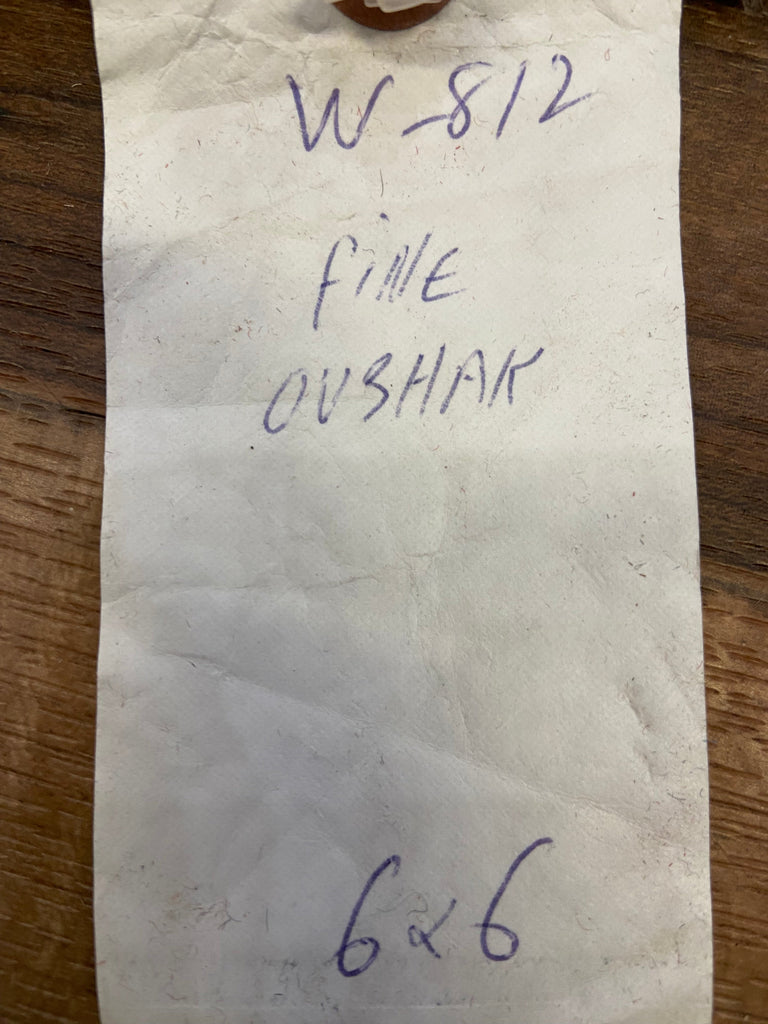 W-812
FiNE
OUSHAK
6x6